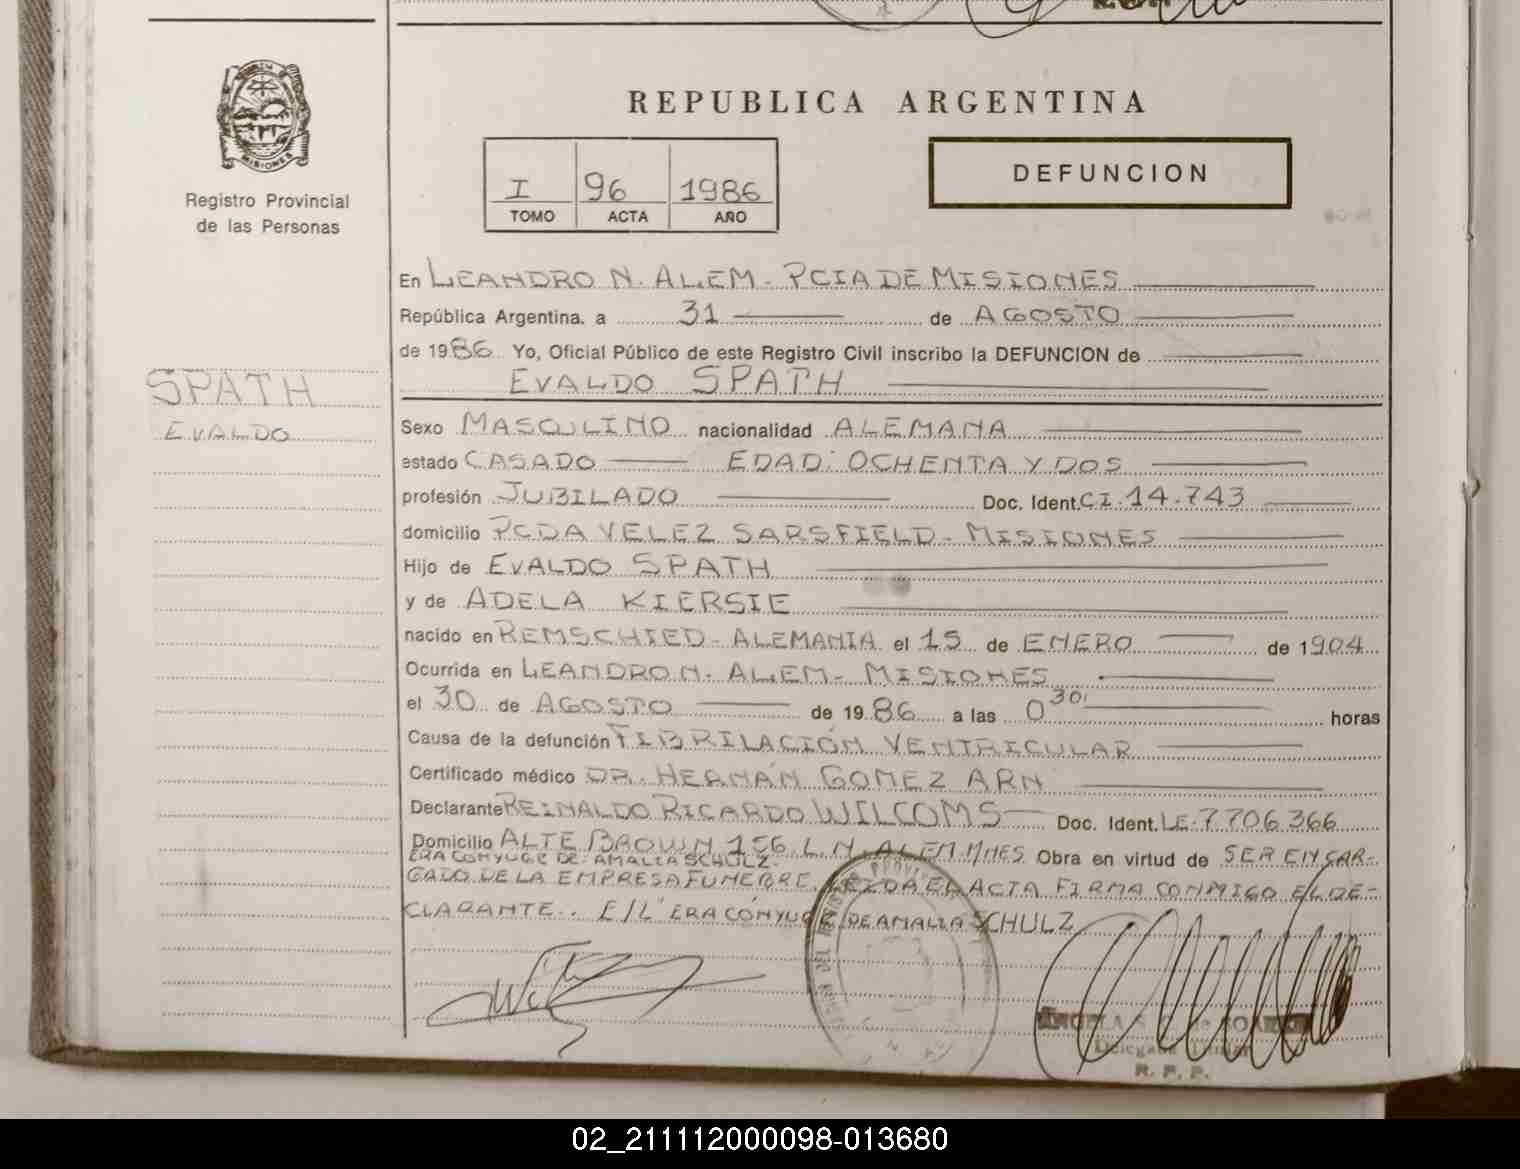 REPUBLICA ARGENTINA
MISIONES
Registro Provincial
de las Personas
I 96 1986
TOMO ACTA AÑO
DEFUNCION
SPATH
EVALDO
En LEANDRO N. ALEM - PCIA DE MISIONES
República Argentina, a 31 de AGOSTO
de 1986 Yo, Oficial Público de este Registro Civil inscribo la DEFUNCION de
EVALDO SPATH
Sexo MASCULINO nacionalidad ALEMANA
estado CASADO EDAD: OCHENTA Y DOS
profesión JUBILADO Doc. Ident. CI. 14.743
domicilio PCDA VELEZ SARSFIELD - MISIONES
Hijo de EVALDO SPATH
y de ADELA KIERSIE
nacido en REMSCHIED - ALEMANIA el 15 de ENERO de 1904
Ocurrida en LEANDRO N. ALEM - MISIONES
el 30 de AGOSTO de 1986 a las 0 30' horas
Causa de la defunción FIBRILACIÓN VENTRICULAR
Certificado médico DR. HERNÁN GOMEZ ARN
Declarante REINALDO RICARDO WILCOMS Doc. Ident. LE. 7706366
Domicilio ALTE BROWN 156 L.N. ALEM MNES. Obra en virtud de SER ENCAR-
ERA CONYUGE DE: AMALIA SCHULZ.
GADO DE LA EMPRESA FUNEBRE. LEIDA EL ACTA FIRMA CONMIGO EL DE-
CLARANTE. E/L "ERA CÓNYUGE DE AMALIA SCHULZ
R. P. P.
02_211112000098-013680